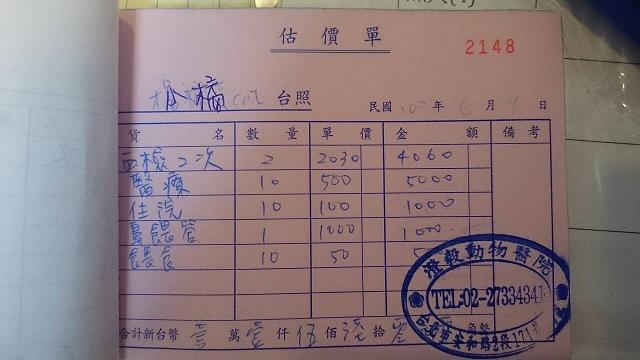 估價單
2148
小橘 台照 民國 年 月 日
貨名 數量 單價 金額 備考
血檢2次 2 2030 4060
醫療 10 500 5000
住院 10 100 1000
鼻餵管 1 1000 1000
餵食 10 50
澄毅動物醫院
TEL:02-27334341
台北市安和路2段171
合計新台幣 壹萬壹仟伍佰陸拾零 角整